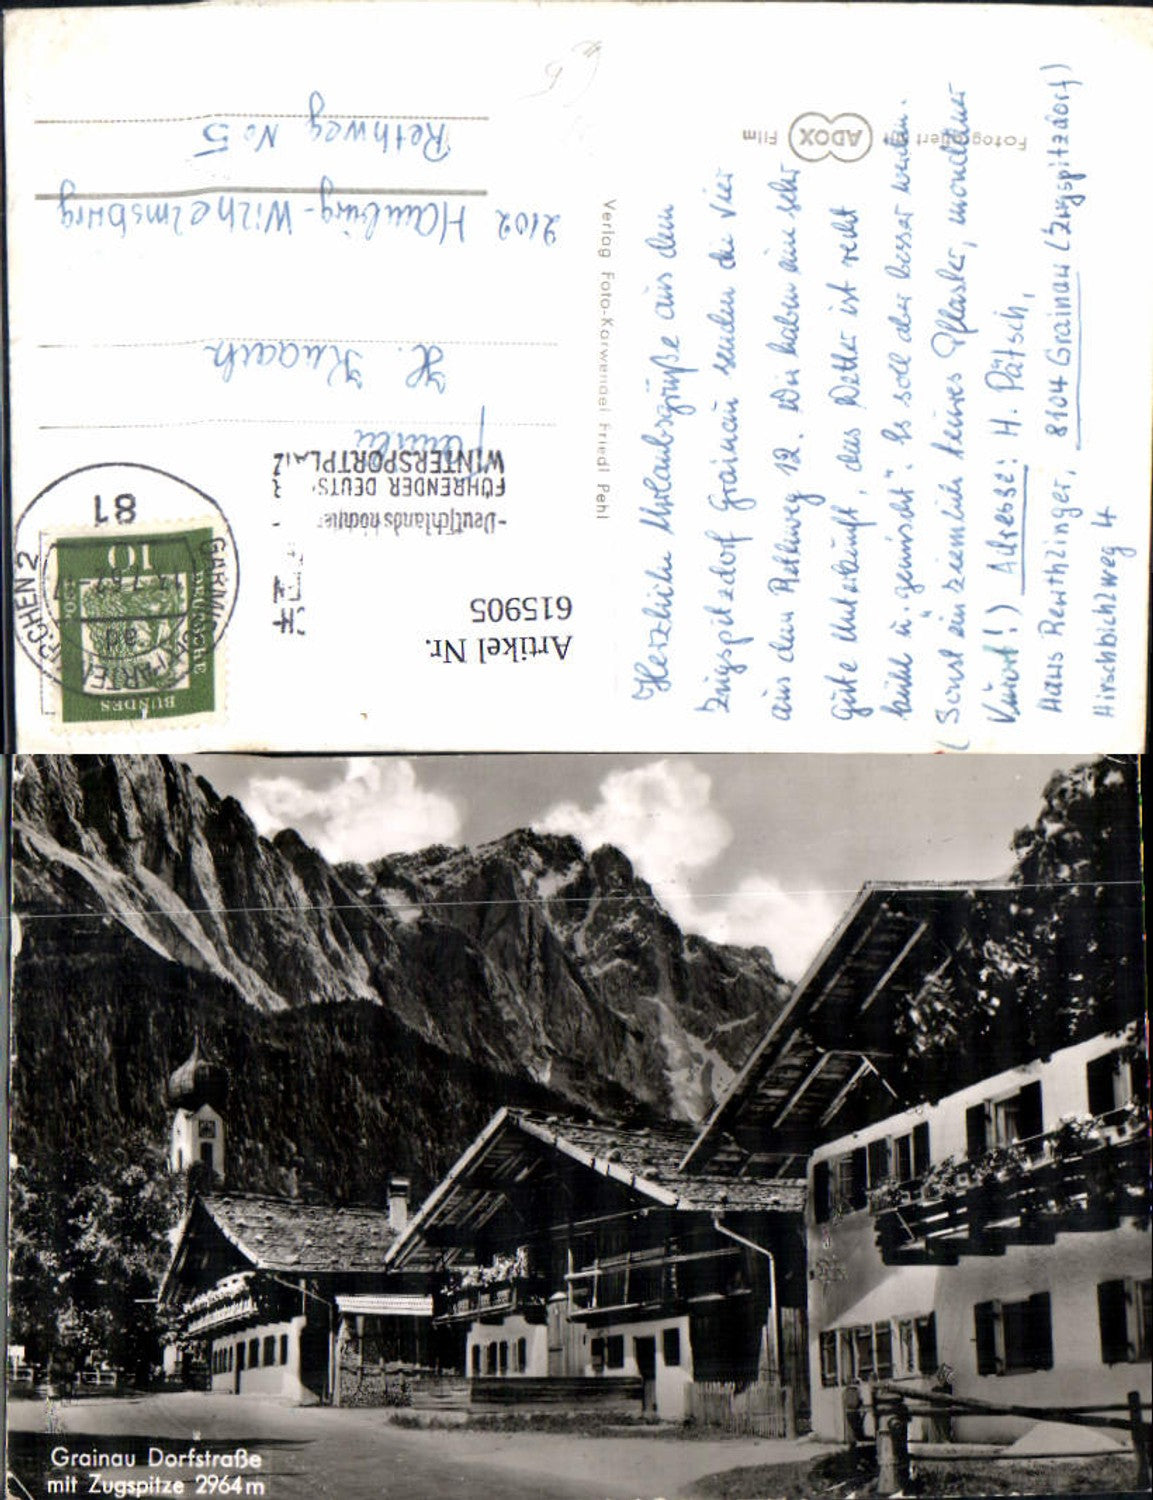 Fotografiert mit ADOX Film
Verlag Foto-Karwendel Friedl Pehl
Herzliche Urlaubsgrüße aus dem
Zugspitzdorf Grainau senden die vier
aus dem Rethweg 12. Wir haben eine sehr
gute Unterkunft, das Wetter ist recht
kühl u. "gemischt". Es soll aber besser werden.
(Sonst ein ziemlich teures Pflaster, mondäner
Kurort!) Adresse: H. Pätsch,
Haus Reuthlinger, 8104 Grainau (Zugspitzdorf)
Hirschbichlweg 4
Artikel Nr.
615905
-Deutschlands höchster
FÜHRENDER DEUTS
WINTERSPORTPLATZ
GARMISCH-PARTENKIRCHEN 2
81
ad
DEUTSCHE
BUNDES
10
Familie
H. Knaack
2102 Hamburg-Wilhelmsburg
Rethweg No 5
Grainau Dorfstraße
mit Zugspitze 2964m